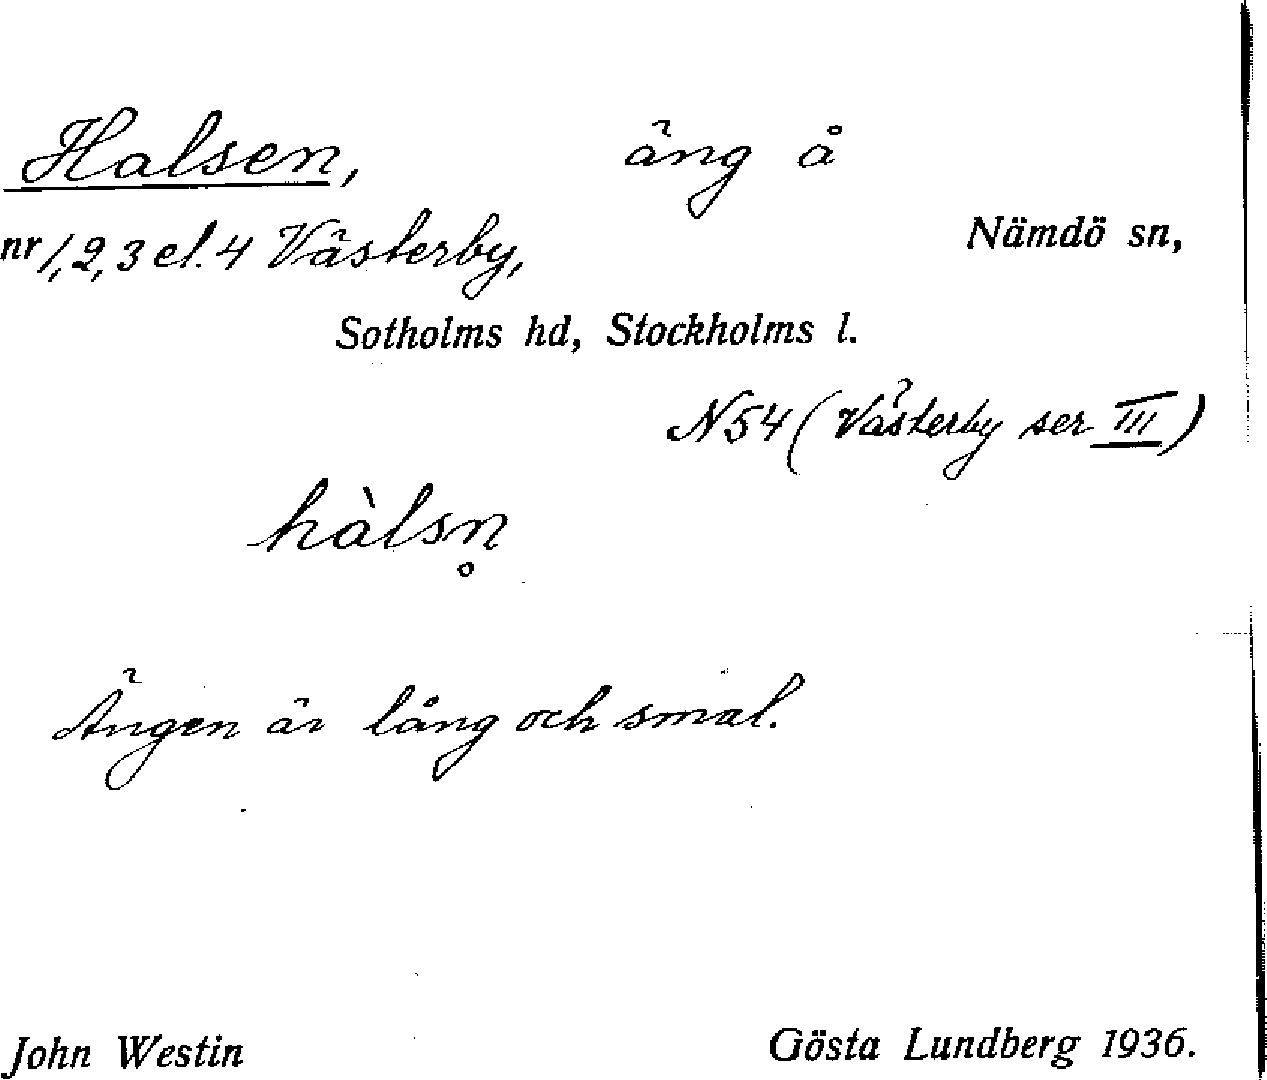 Halsen, äng å
nr 1, 2, 3 el. 4 Västerby, Nämdö sn,
Sotholms hd, Stockholms l.
N54 (Västerby ser III)
hàlsn̥
Ängen är lång och smal.
John Westin Gösta Lundberg 1936.